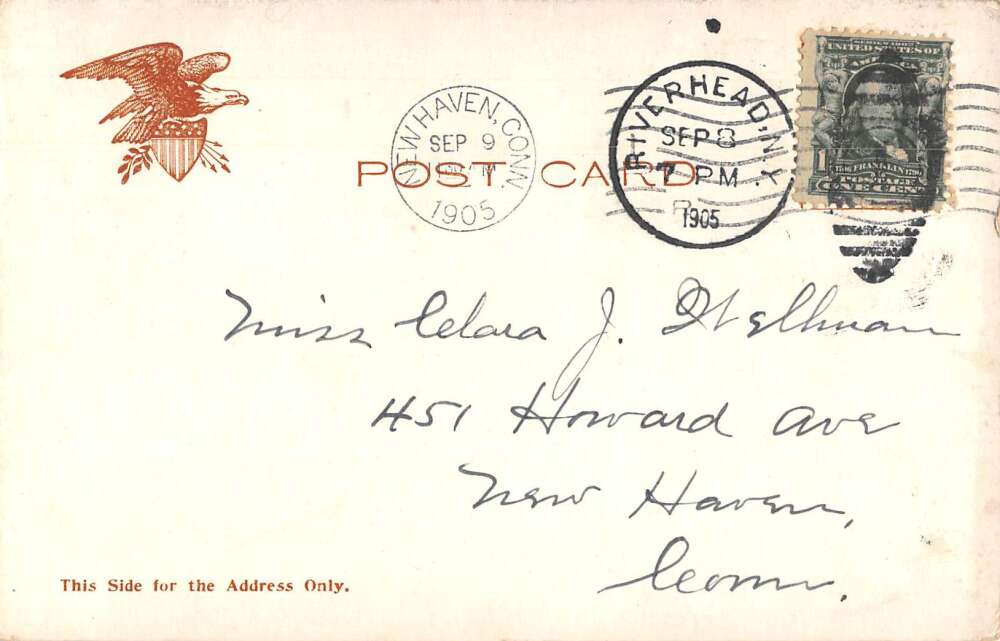 SERIES 1902
UNITED STATES OF
AMERICA
1706 FRANKLIN 1790
POSTAGE
ONE CENT
RIVERHEAD, N.Y.
SEP 8
7 PM
1905
NEW HAVEN, CONN.
SEP 9
M
1905
POST CARD
Miss Clara J. Wellman
451 Howard Ave
New Haven,
Conn.
This Side for the Address Only.